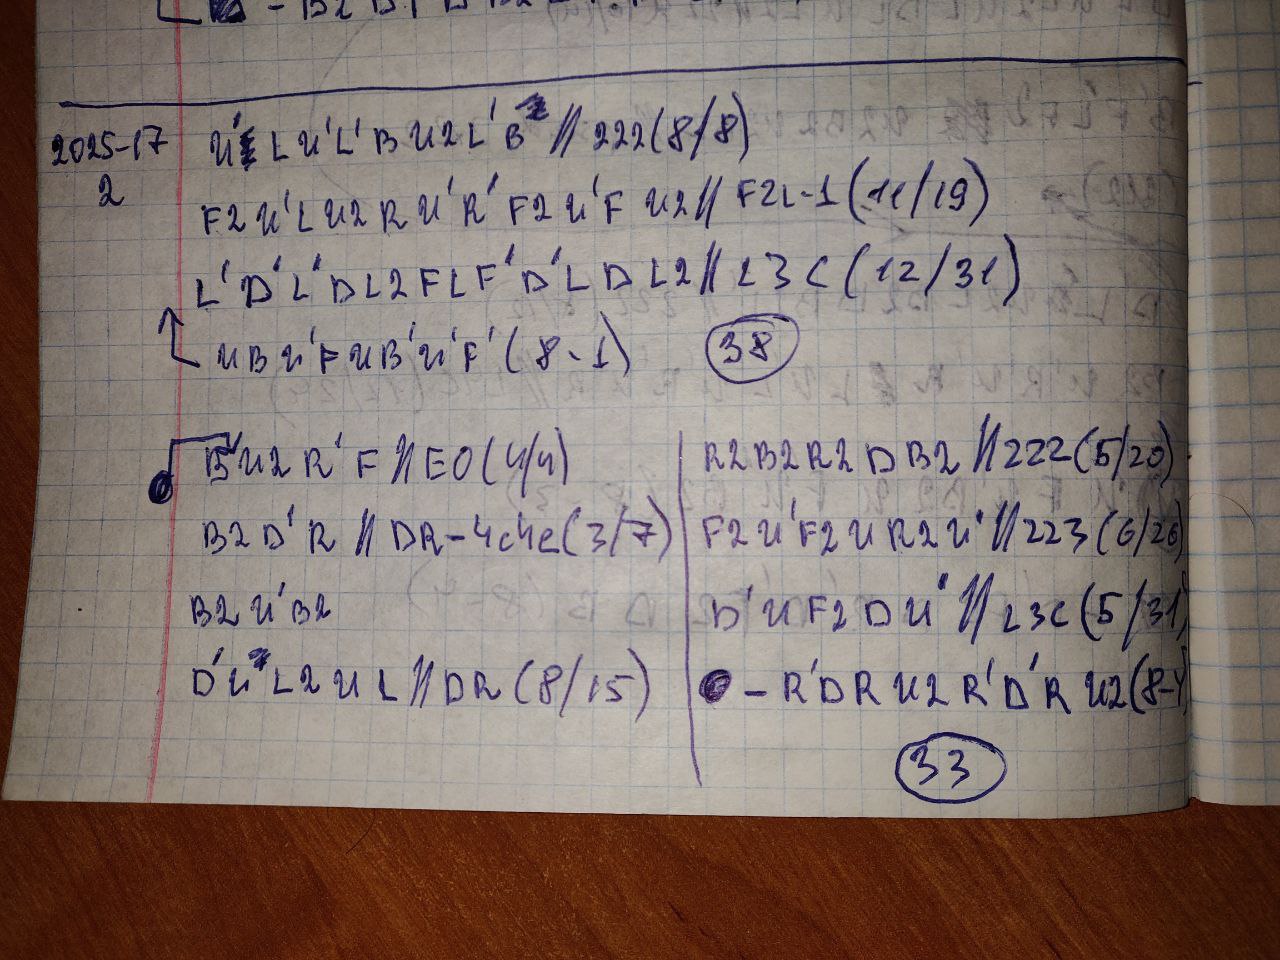 2025-17
2
U' L U' L' B U2 L' B2 // 222 (8/8)
F2 U' L U2 R U' R' F2 U' F U2 // F2L-1 (11/19)
L' D' L' D L2 F L F' D' L D L2 // L3C (12/31)
U B U' F U B' U' F' (8-1) 38
B' U2 R' F // EO (4/4)
B2 D' R // DR-4c4e (3/7)
B2 U' B2
D' U' L2 U L // DR (8/15)
R2 B2 R2 D B2 // 222 (5/20)
F2 U' F2 U R2 U' // 223 (6/26)
D' U F2 D U' // L3C (5/31)
- R' D R U2 R' D' R U2 (8-4)
33